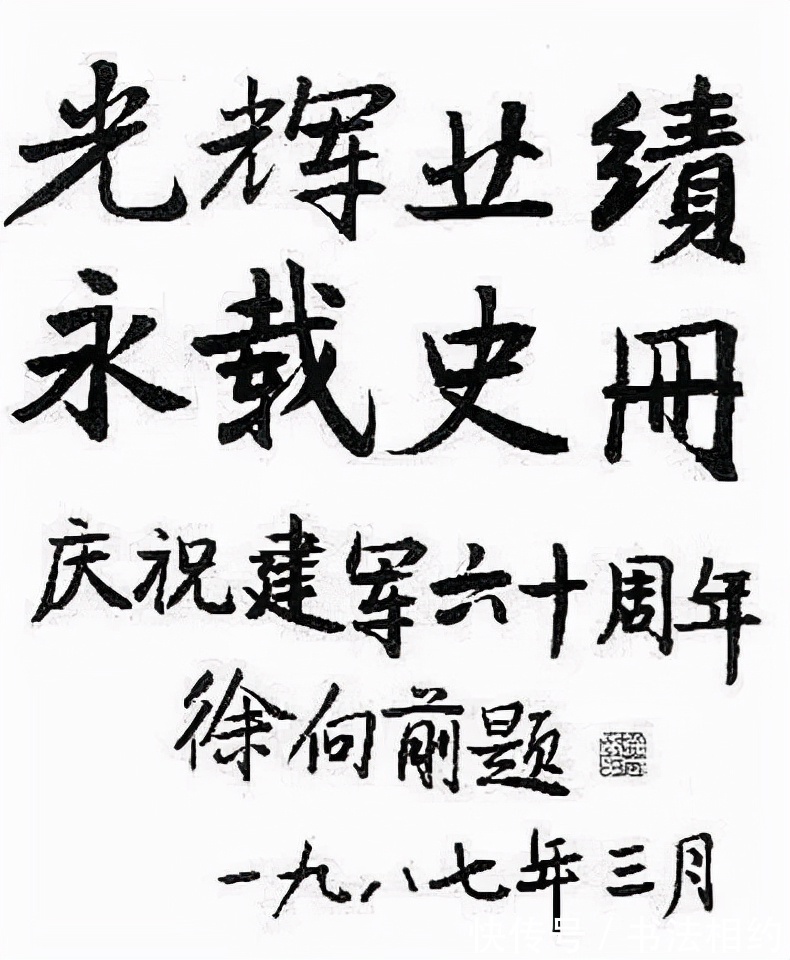 光辉业績
永载史冊
庆祝建军六十周年
徐向前题
一九八七年三月
快传号 / 书法相约